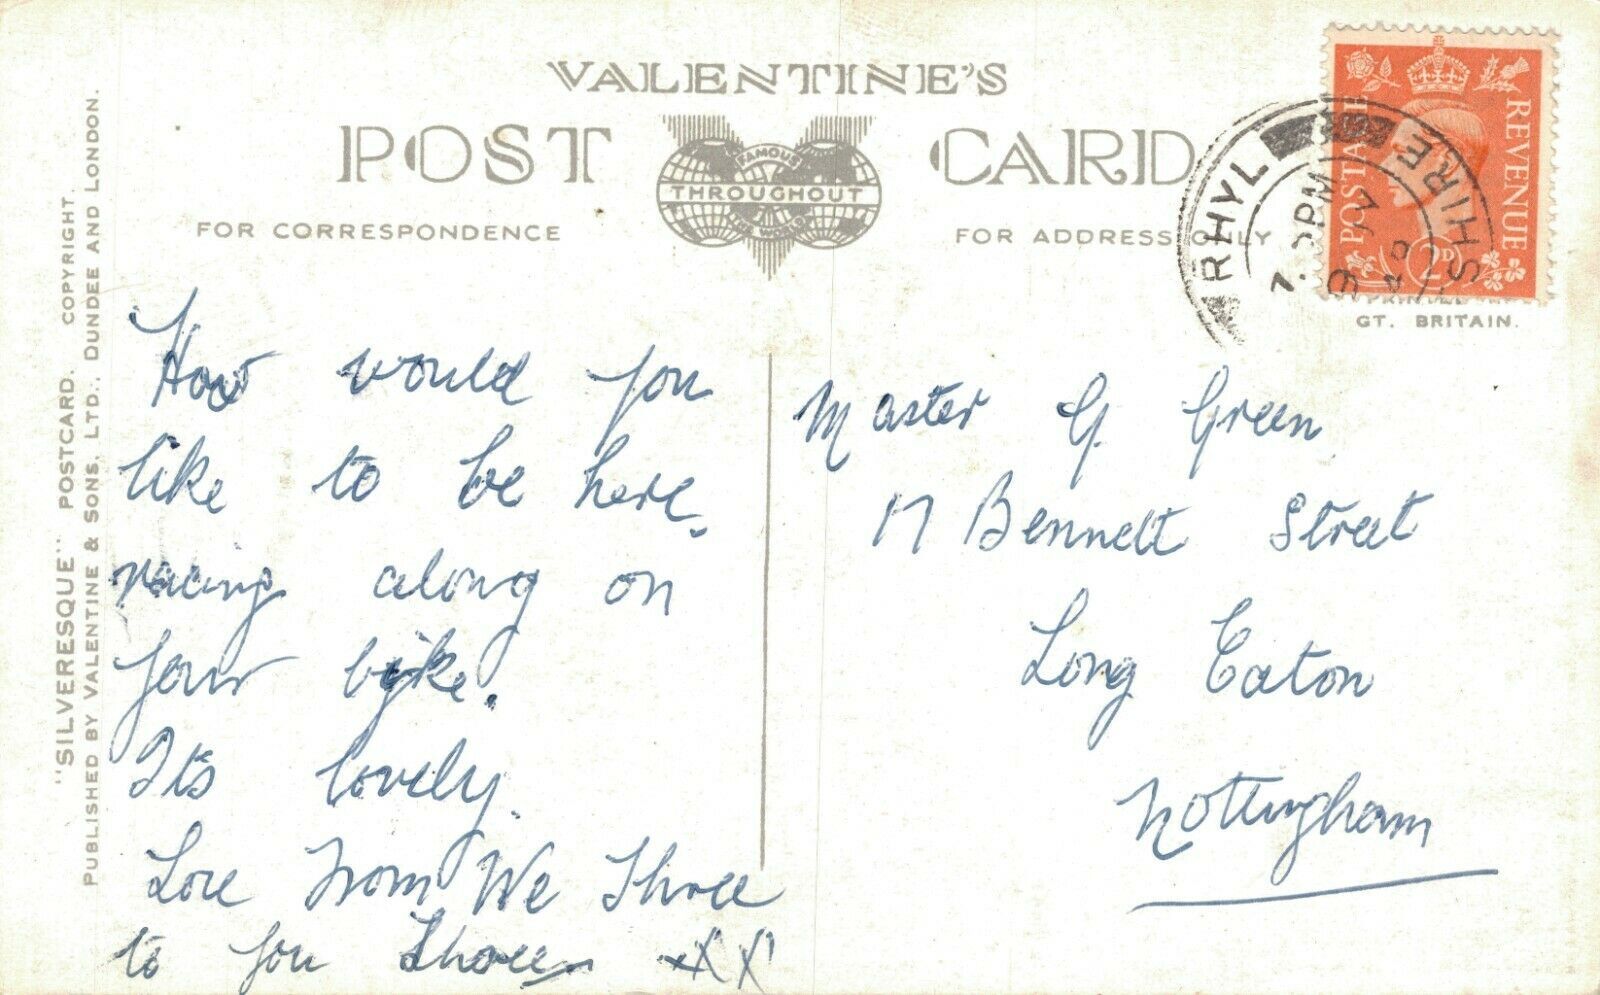 VALENTINE'S
POST CARD
FAMOUS
THROUGHOUT
THE WORLD
FOR CORRESPONDENCE
FOR ADDRESS ONLY
"SILVERESQUE" POSTCARD. COPYRIGHT.
PUBLISHED BY VALENTINE & SONS, LTD., DUNDEE AND LONDON.
POSTAGE
REVENUE
2D
RHYL
SHIRE
PM
PRINTED IN
GT. BRITAIN.
How would you
like to be here,
racing along on
your byke.
It's lovely.
Love from We Three
to you Three XXX
Master G. Green
17 Bennett Street
Long Eaton
Nottingham